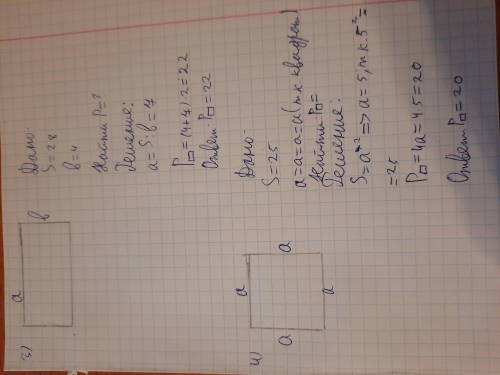 з)
a
b
Дано:
S=28
b=4
Найти P=?
Решение:
a=S:b=7
P□=(4+7)·2=22
Ответ: P□=22
и)
a
a
a
a
Дано:
S=25
a=a=a=a (т.к квадрат)
Найти: P□=
Решение:
S=a²=>a=5, т.к. 5²=
=25
P□=4a=4·5=20
Ответ P□=20